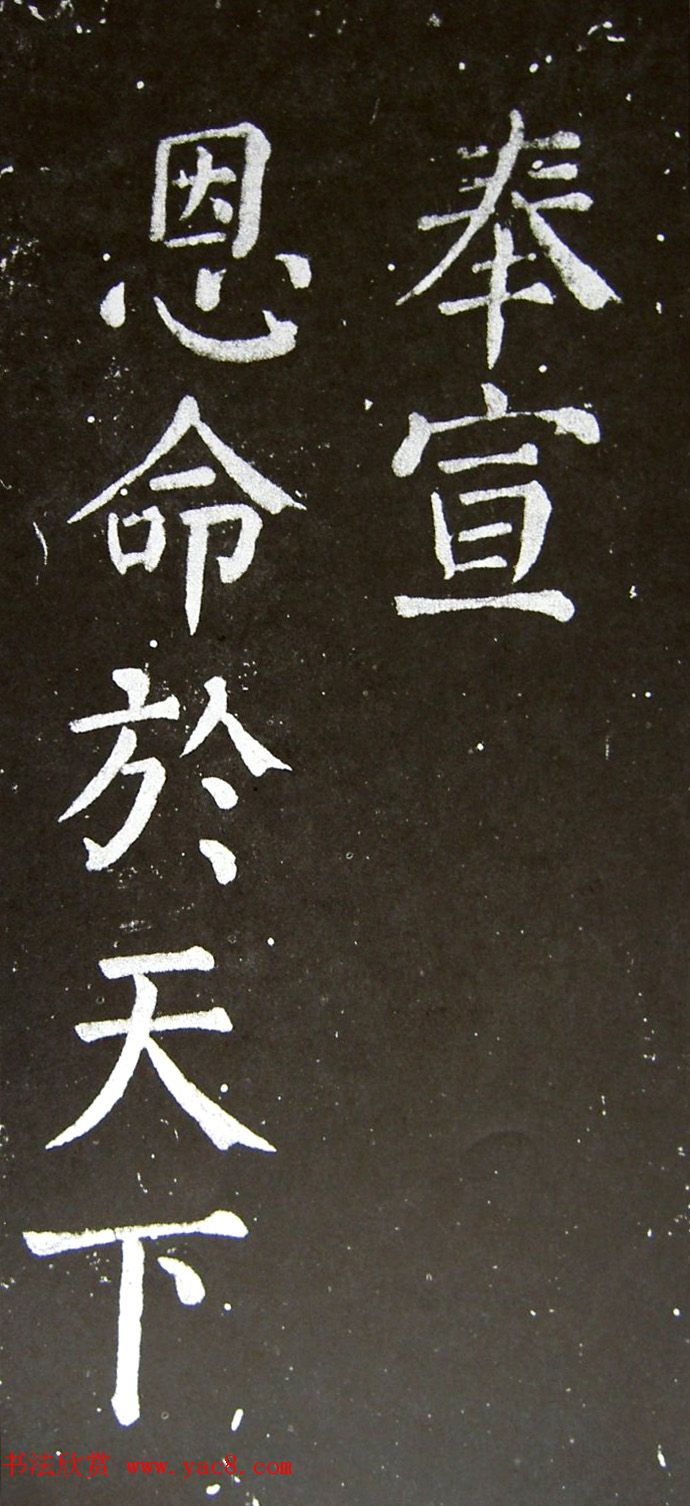 奉宣
恩命於天下
书法欣赏 www.yac8.com